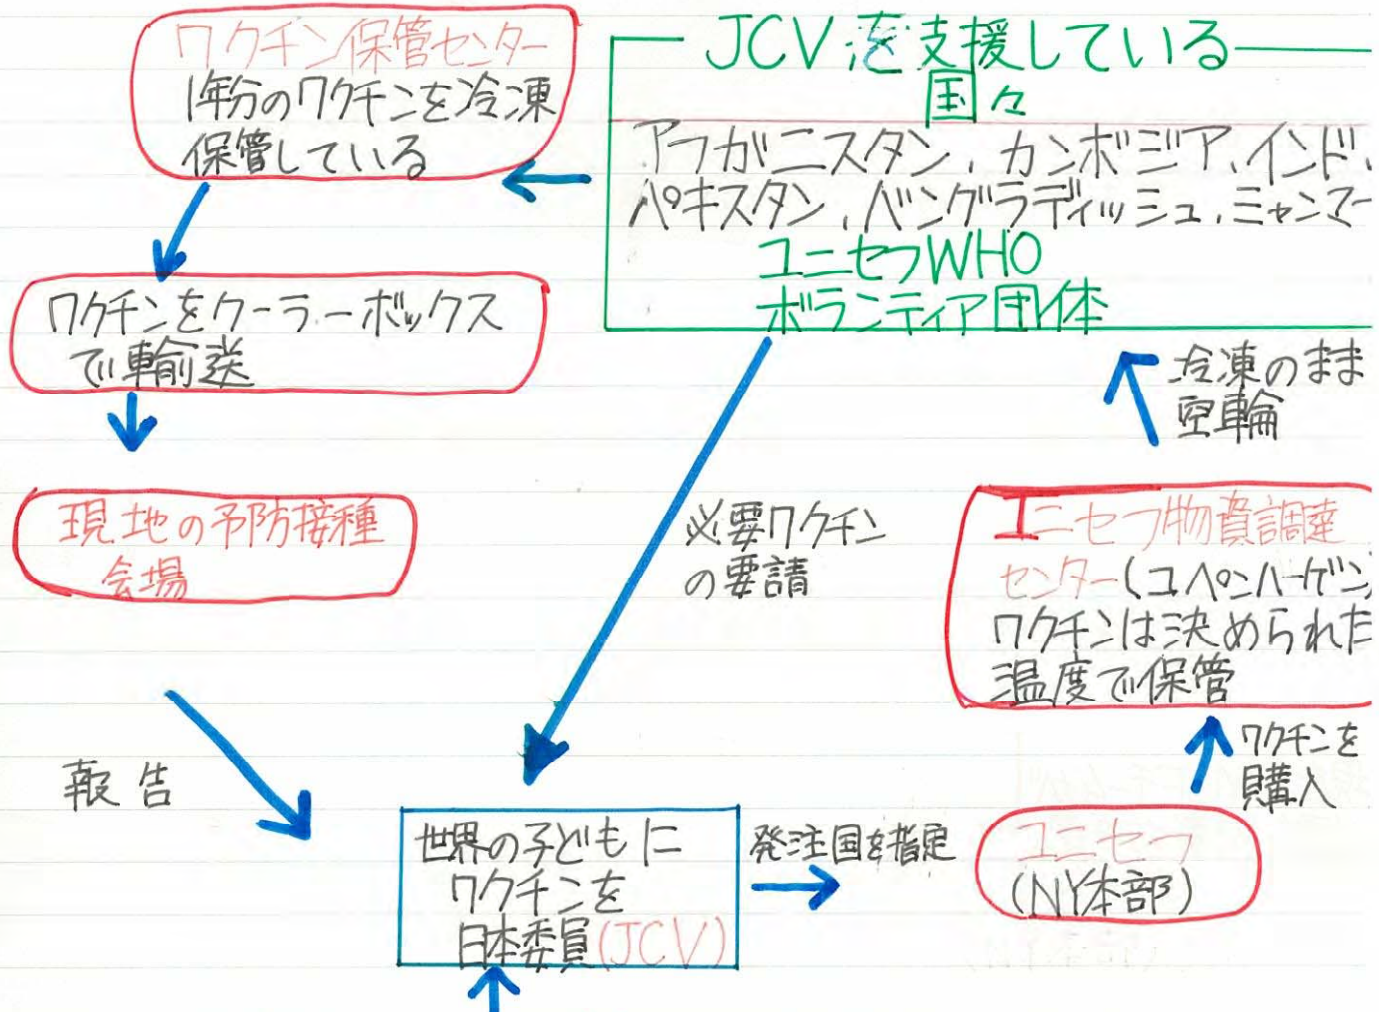 ワクチン保管センター
1年分のワクチンを冷凍
保管している
JCVを支援している
国々
アフガニスタン、カンボジア、インド、
パキスタン、バングラディッシュ、ミャンマー
ユニセフWHO
ボランティア団体
ワクチンをクーラーボックス
で輸送
冷凍のまま
空輸
現地の予防接種
会場
必要ワクチン
の要請
ユニセフ物資調達
センター(コペンハーゲン)
ワクチンは決められた
温度で保管
ワクチンを
購入
報告
世界の子どもに
ワクチンを
日本委員(JCV)
発注国を指定
ユニセフ
(NY本部)